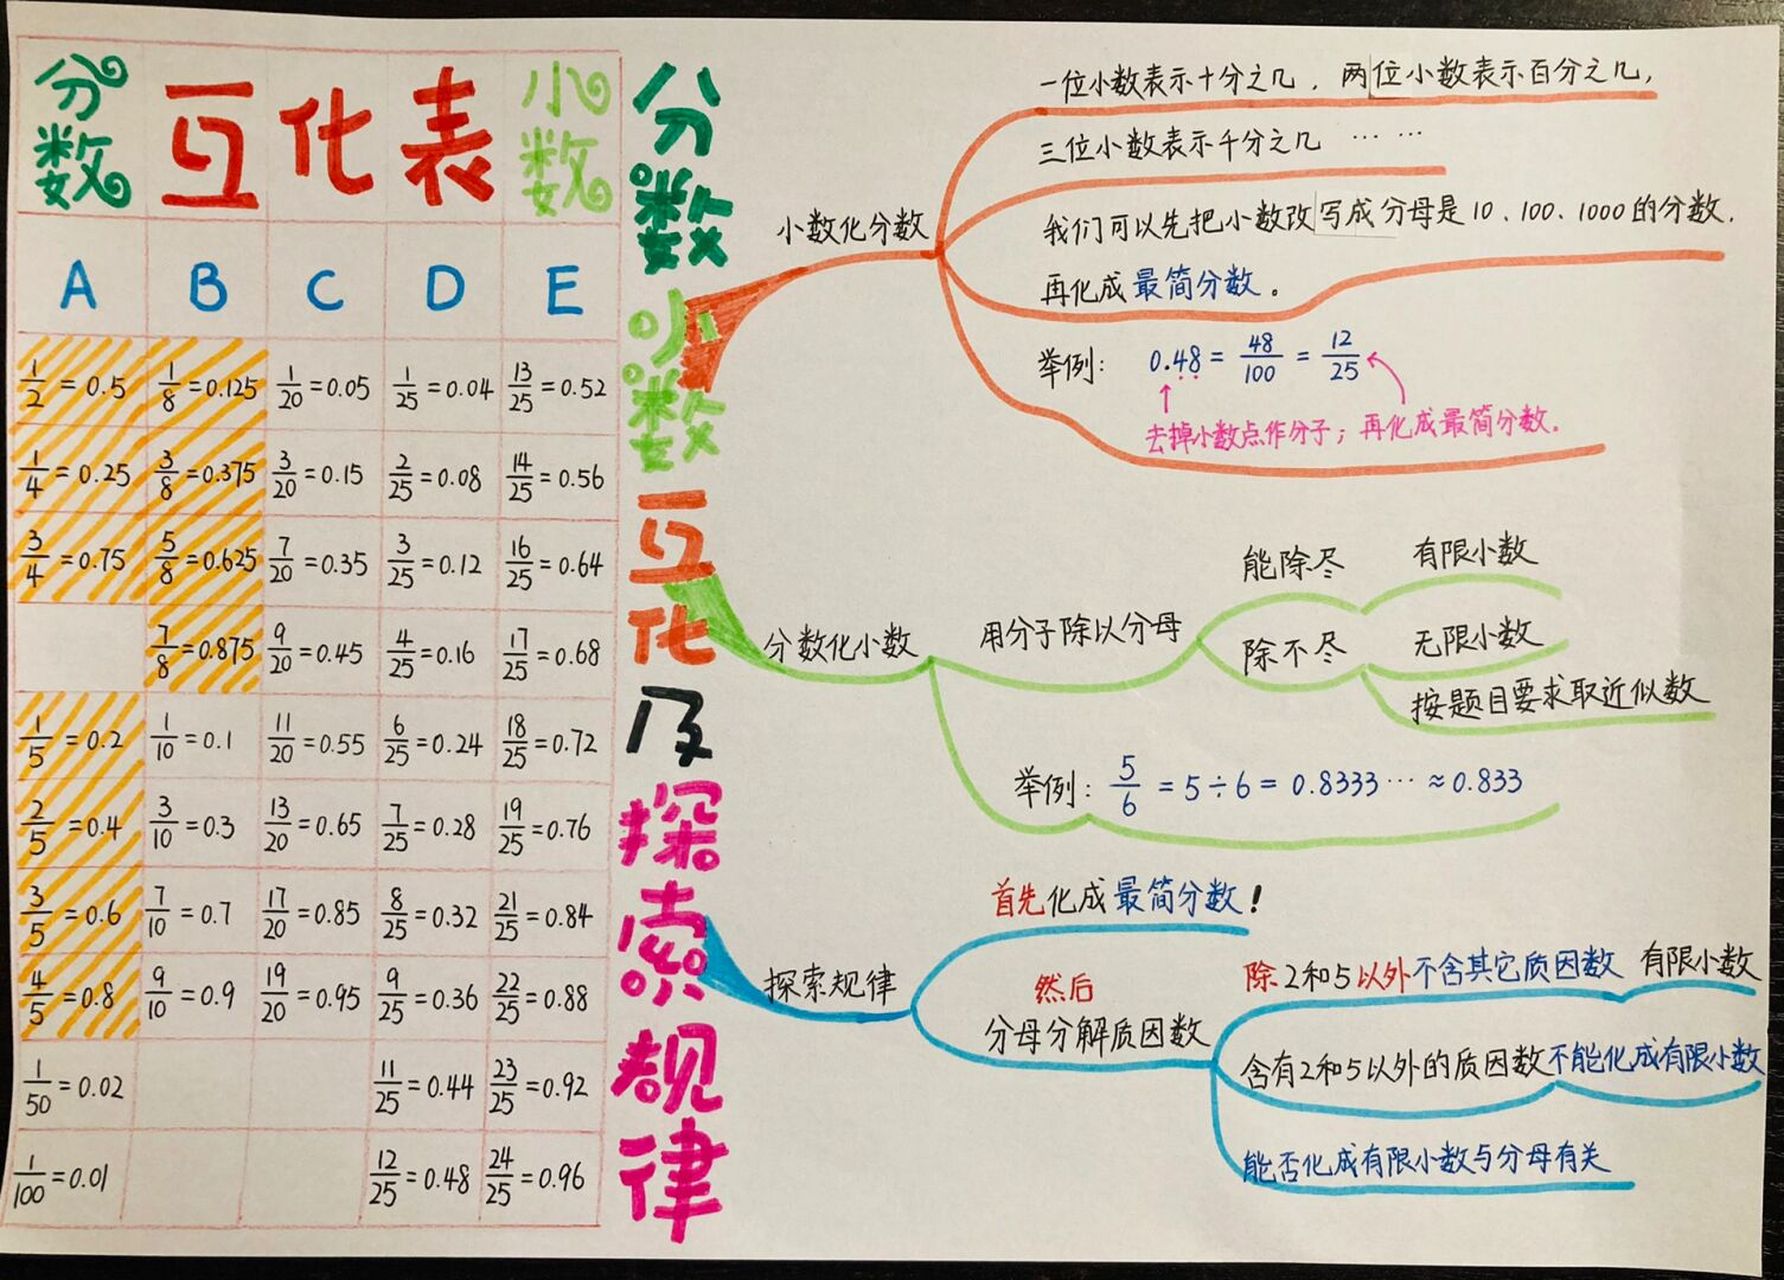 分数 互化表 小数
A B C D E
1/2 = 0.5 1/8 = 0.125 1/20 = 0.05 1/25 = 0.04 13/25 = 0.52
1/4 = 0.25 3/8 = 0.375 3/20 = 0.15 2/25 = 0.08 14/25 = 0.56
3/4 = 0.75 5/8 = 0.625 7/20 = 0.35 3/25 = 0.12 16/25 = 0.64
7/8 = 0.875 9/20 = 0.45 4/25 = 0.16 17/25 = 0.68
1/5 = 0.2 1/10 = 0.1 11/20 = 0.55 6/25 = 0.24 18/25 = 0.72
2/5 = 0.4 3/10 = 0.3 13/20 = 0.65 7/25 = 0.28 19/25 = 0.76
3/5 = 0.6 7/10 = 0.7 17/20 = 0.85 8/25 = 0.32 21/25 = 0.84
4/5 = 0.8 9/10 = 0.9 19/20 = 0.95 9/25 = 0.36 22/25 = 0.88
1/50 = 0.02 11/25 = 0.44 23/25 = 0.92
1/100 = 0.01 12/25 = 0.48 24/25 = 0.96
分数小数互化及探索规律
小数化分数
一位小数表示十分之几，两位小数表示百分之几，
三位小数表示千分之几 ……
我们可以先把小数改写成分母是10、100、1000的分数.
再化成最简分数。
举例: 0.48 = 48/100 = 12/25
去掉小数点作分子；再化成最简分数。
分数化小数
用分子除以分母
能除尽 有限小数
除不尽 无限小数
按题目要求取近似数
举例: 5/6 = 5÷6 = 0.8333… ≈0.833
探索规律
首先化成最简分数！
然后
分母分解质因数
除2和5以外不含其它质因数 有限小数
含有2和5以外的质因数不能化成有限小数
能否化成有限小数与分母有关